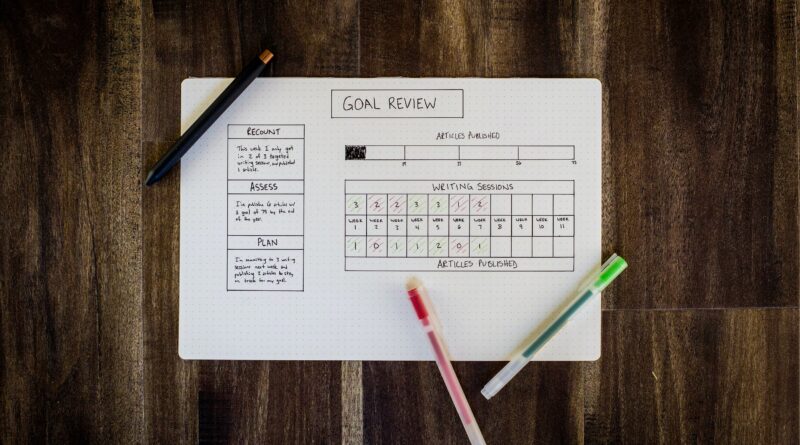 GOAL REVIEW
RECOUNT
This week I only got
in 2 of 3 targeted
writing sessions, and published
1 article.
ASSESS
I've published 6 articles w/
a goal of 75 by the end
of the year.
PLAN
I'm committing to 3 writing
sessions next week and
publishing 2 articles to stay
on track for my goal.
ARTICLES PUBLISHED
WRITING SESSIONS
3 2 2 3 3 1 2
WEEK 1 WEEK 2 WEEK 3 WEEK 4 WEEK 5 WEEK 6 WEEK 7 WEEK 8 WEEK 9 WEEK 10 WEEK 11
1 0 1 1 2 0 1
ARTICLES PUBLISHED